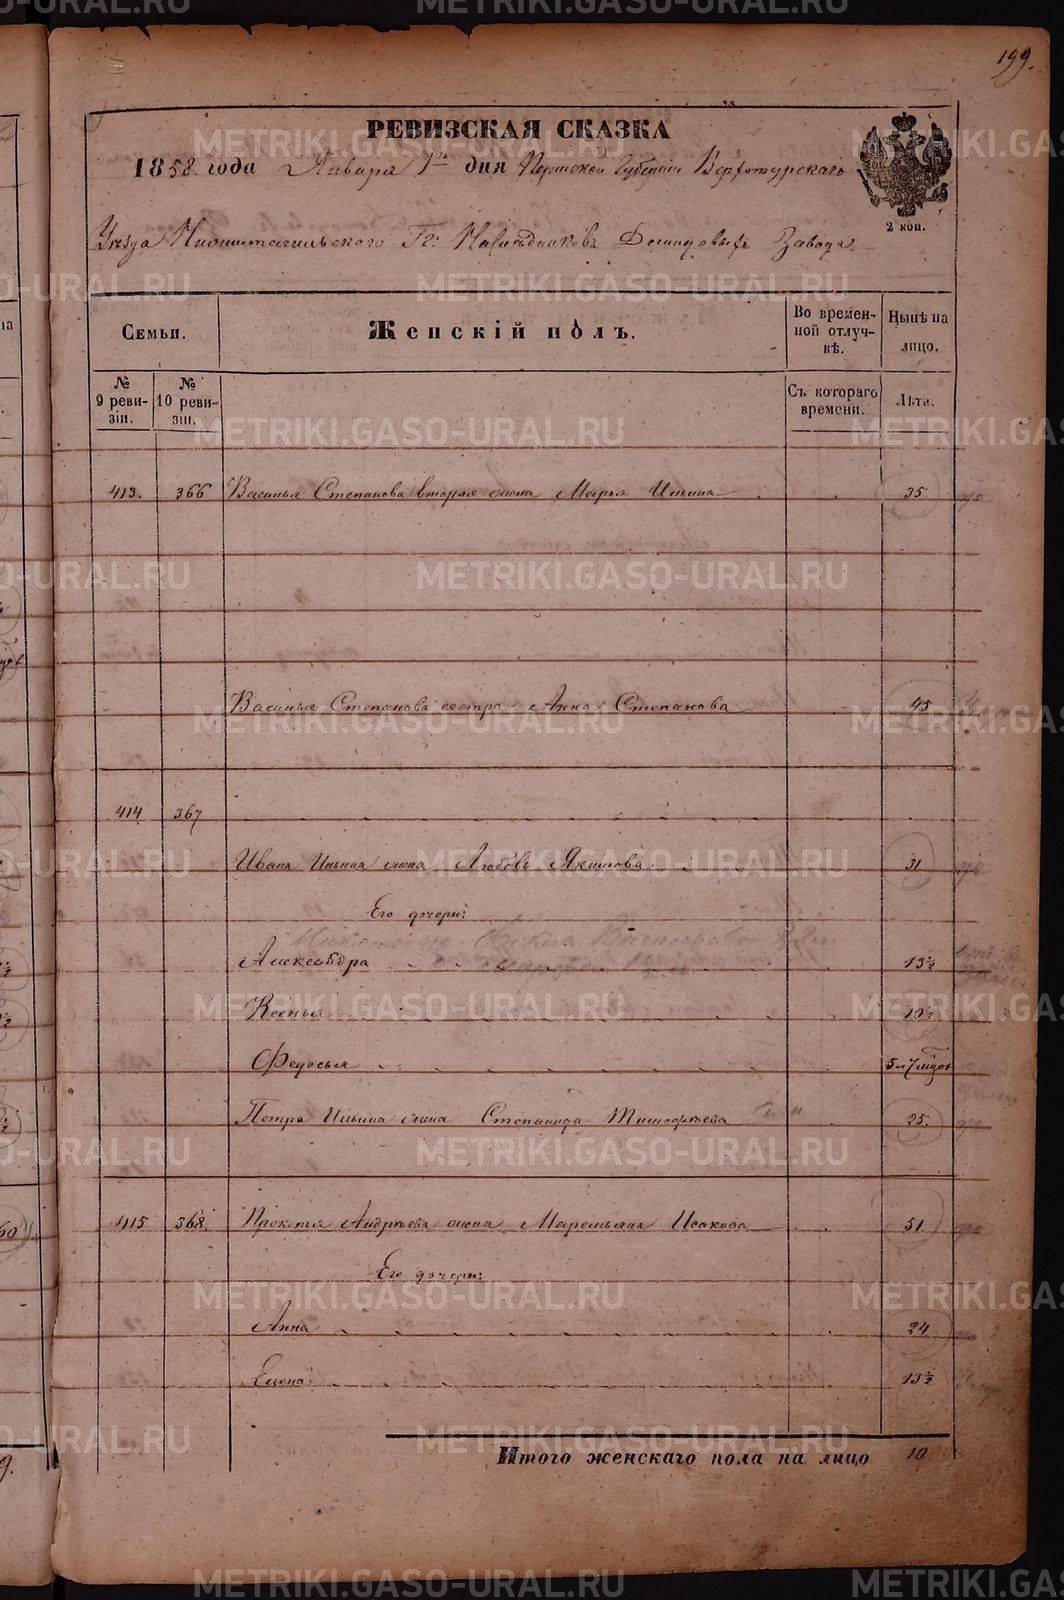 199.
РЕВИЗСКАЯ СКАЗКА
1858 года Января 1го дня Пермской Губернии Верхотурскаго
2 коп.
Уезда Нижнетагильского Гг: Наследниковъ Демидовыхъ Завода
Семьи.
Женскій полъ.
Во временной отлучкѣ.
Нынѣ на лицо.
№ 9 ревизіи.
№ 10 ревизіи.
Съ котораго времени.
Лѣта.
413. 366 Василья Степанова вторая жена Марья Ильина 35
Василья Степанова сестра Анна Степанова 45
414 367
Ивана Ильина жена Любовь Якимова 31
Его дочери:
Александра 13½
Ксенья 10½
Федосья 5 и 7 мцов
Петра Ильина жена Степанида Тимофеева 25.
415 368. Прокопья Андреева жена Маремьяна Исакова 51
Его дочери:
Анна 24
Елена 13½
Итого женскаго пола на лицо 10
METRIKI.GASO-URAL.RU